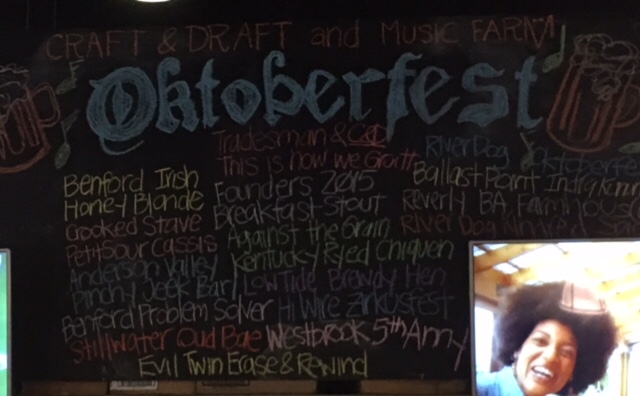 CRAFT & DRAFT and MUSIC FARM
Oktoberfest
Tradesman &
This is how we
RiverDog Oktoberfe
Ballast Point Indra Kun
Reverly BA Farmhouse
River Dog
Benford Irish
Honey Blonde
Crooked Stave
Petit Sour Cassis
Anderson Valley
Pinchy Jeek Barl
Benford Problem Solver
Stillwater Oud Bae
Founders 2015
Breakfast Stout
Against the Grain
Kentucky Ryed Chiquen
Low Tide Brewdy Hen
Hi Wire Zirkusfest
Westbrook 5th Anny
Evil Twin Erase & Rewind